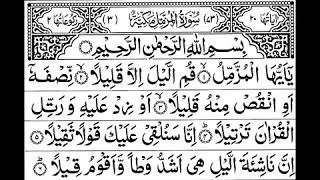 اٰیاتہا ۲۰ (۷۳) سُوْرَةُ الْمُزَّمِّلِ مَكِّيَّةٌ (۳) رکوعاتہا ۲
بِسْمِ اللّٰهِ الرَّحْمٰنِ الرَّحِيْمِ
يٰۤاَيُّهَا الْمُزَّمِّلُ ۙ۱ قُمِ الَّيْلَ اِلَّا قَلِيْلًا ۙ۲ نِّصْفَهٗۤ
اَوِ انْقُصْ مِنْهُ قَلِيْلًا ۙ۳ اَوْ زِدْ عَلَيْهِ وَ رَتِّلِ
الْقُرْاٰنَ تَرْتِيْلًا ؕ۴ اِنَّا سَنُلْقِيْ عَلَيْكَ قَوْلًا ثَقِيْلًا ۵
اِنَّ نَاشِئَةَ الَّيْلِ هِيَ اَشَدُّ وَطْاً وَّ اَقْوَمُ قِيْلًا ؕ۶